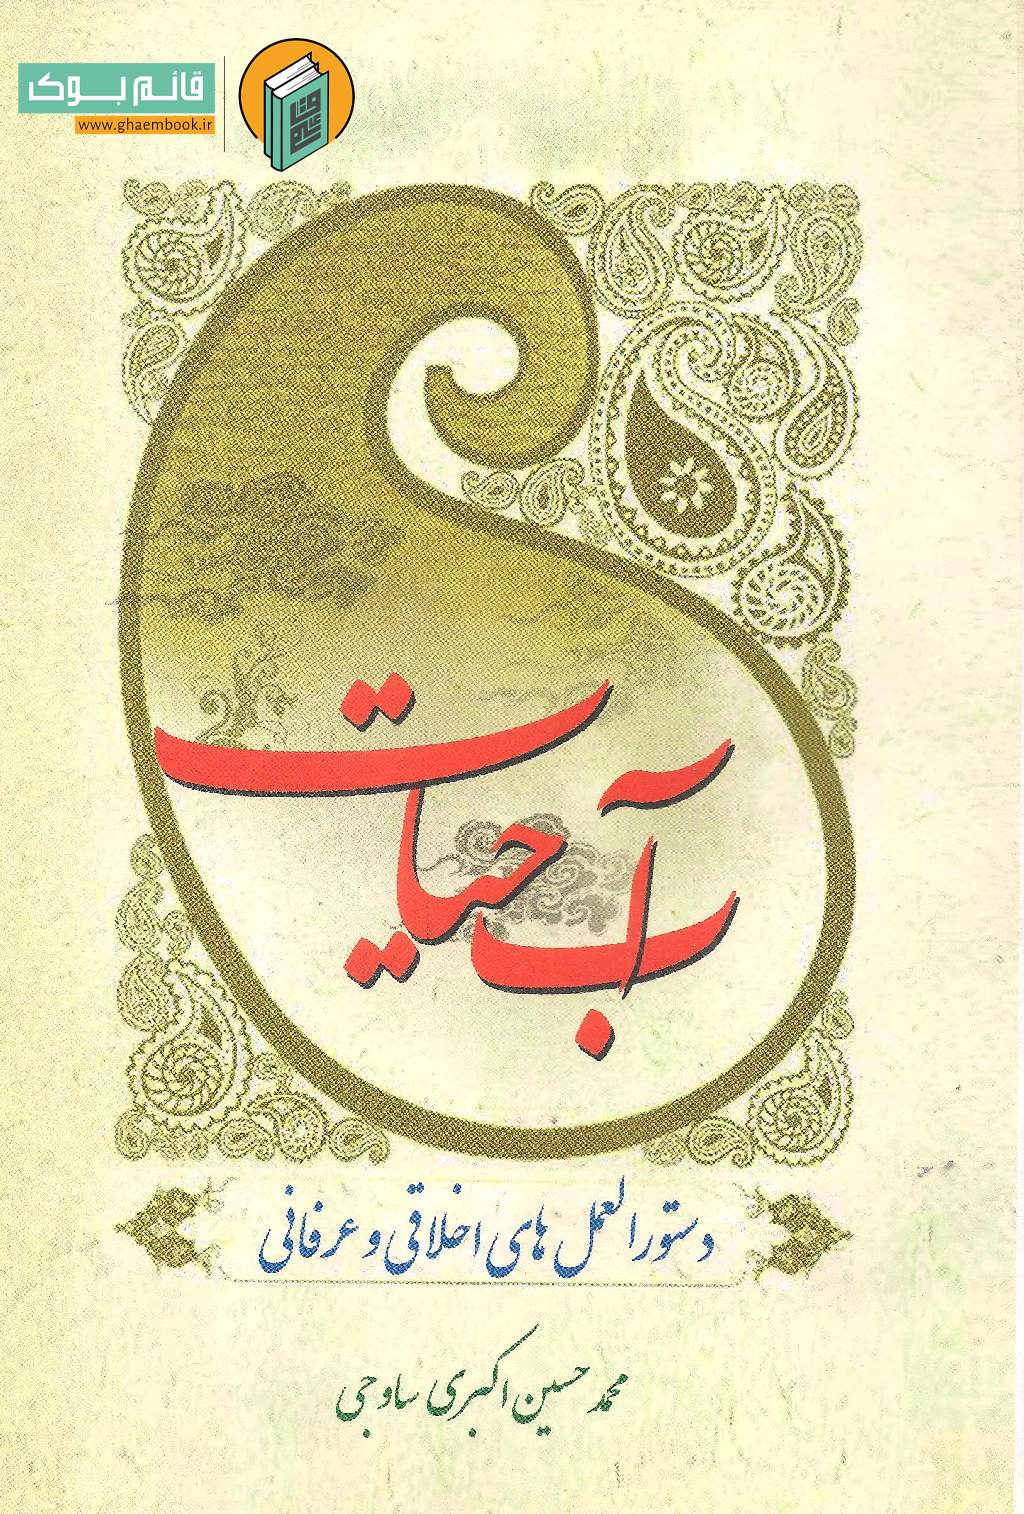 قائم بوک
www.ghaembook.ir
آب حیات
دستورالعمل های اخلاقی و عرفانی
محمد حسین اکبری ساوجی